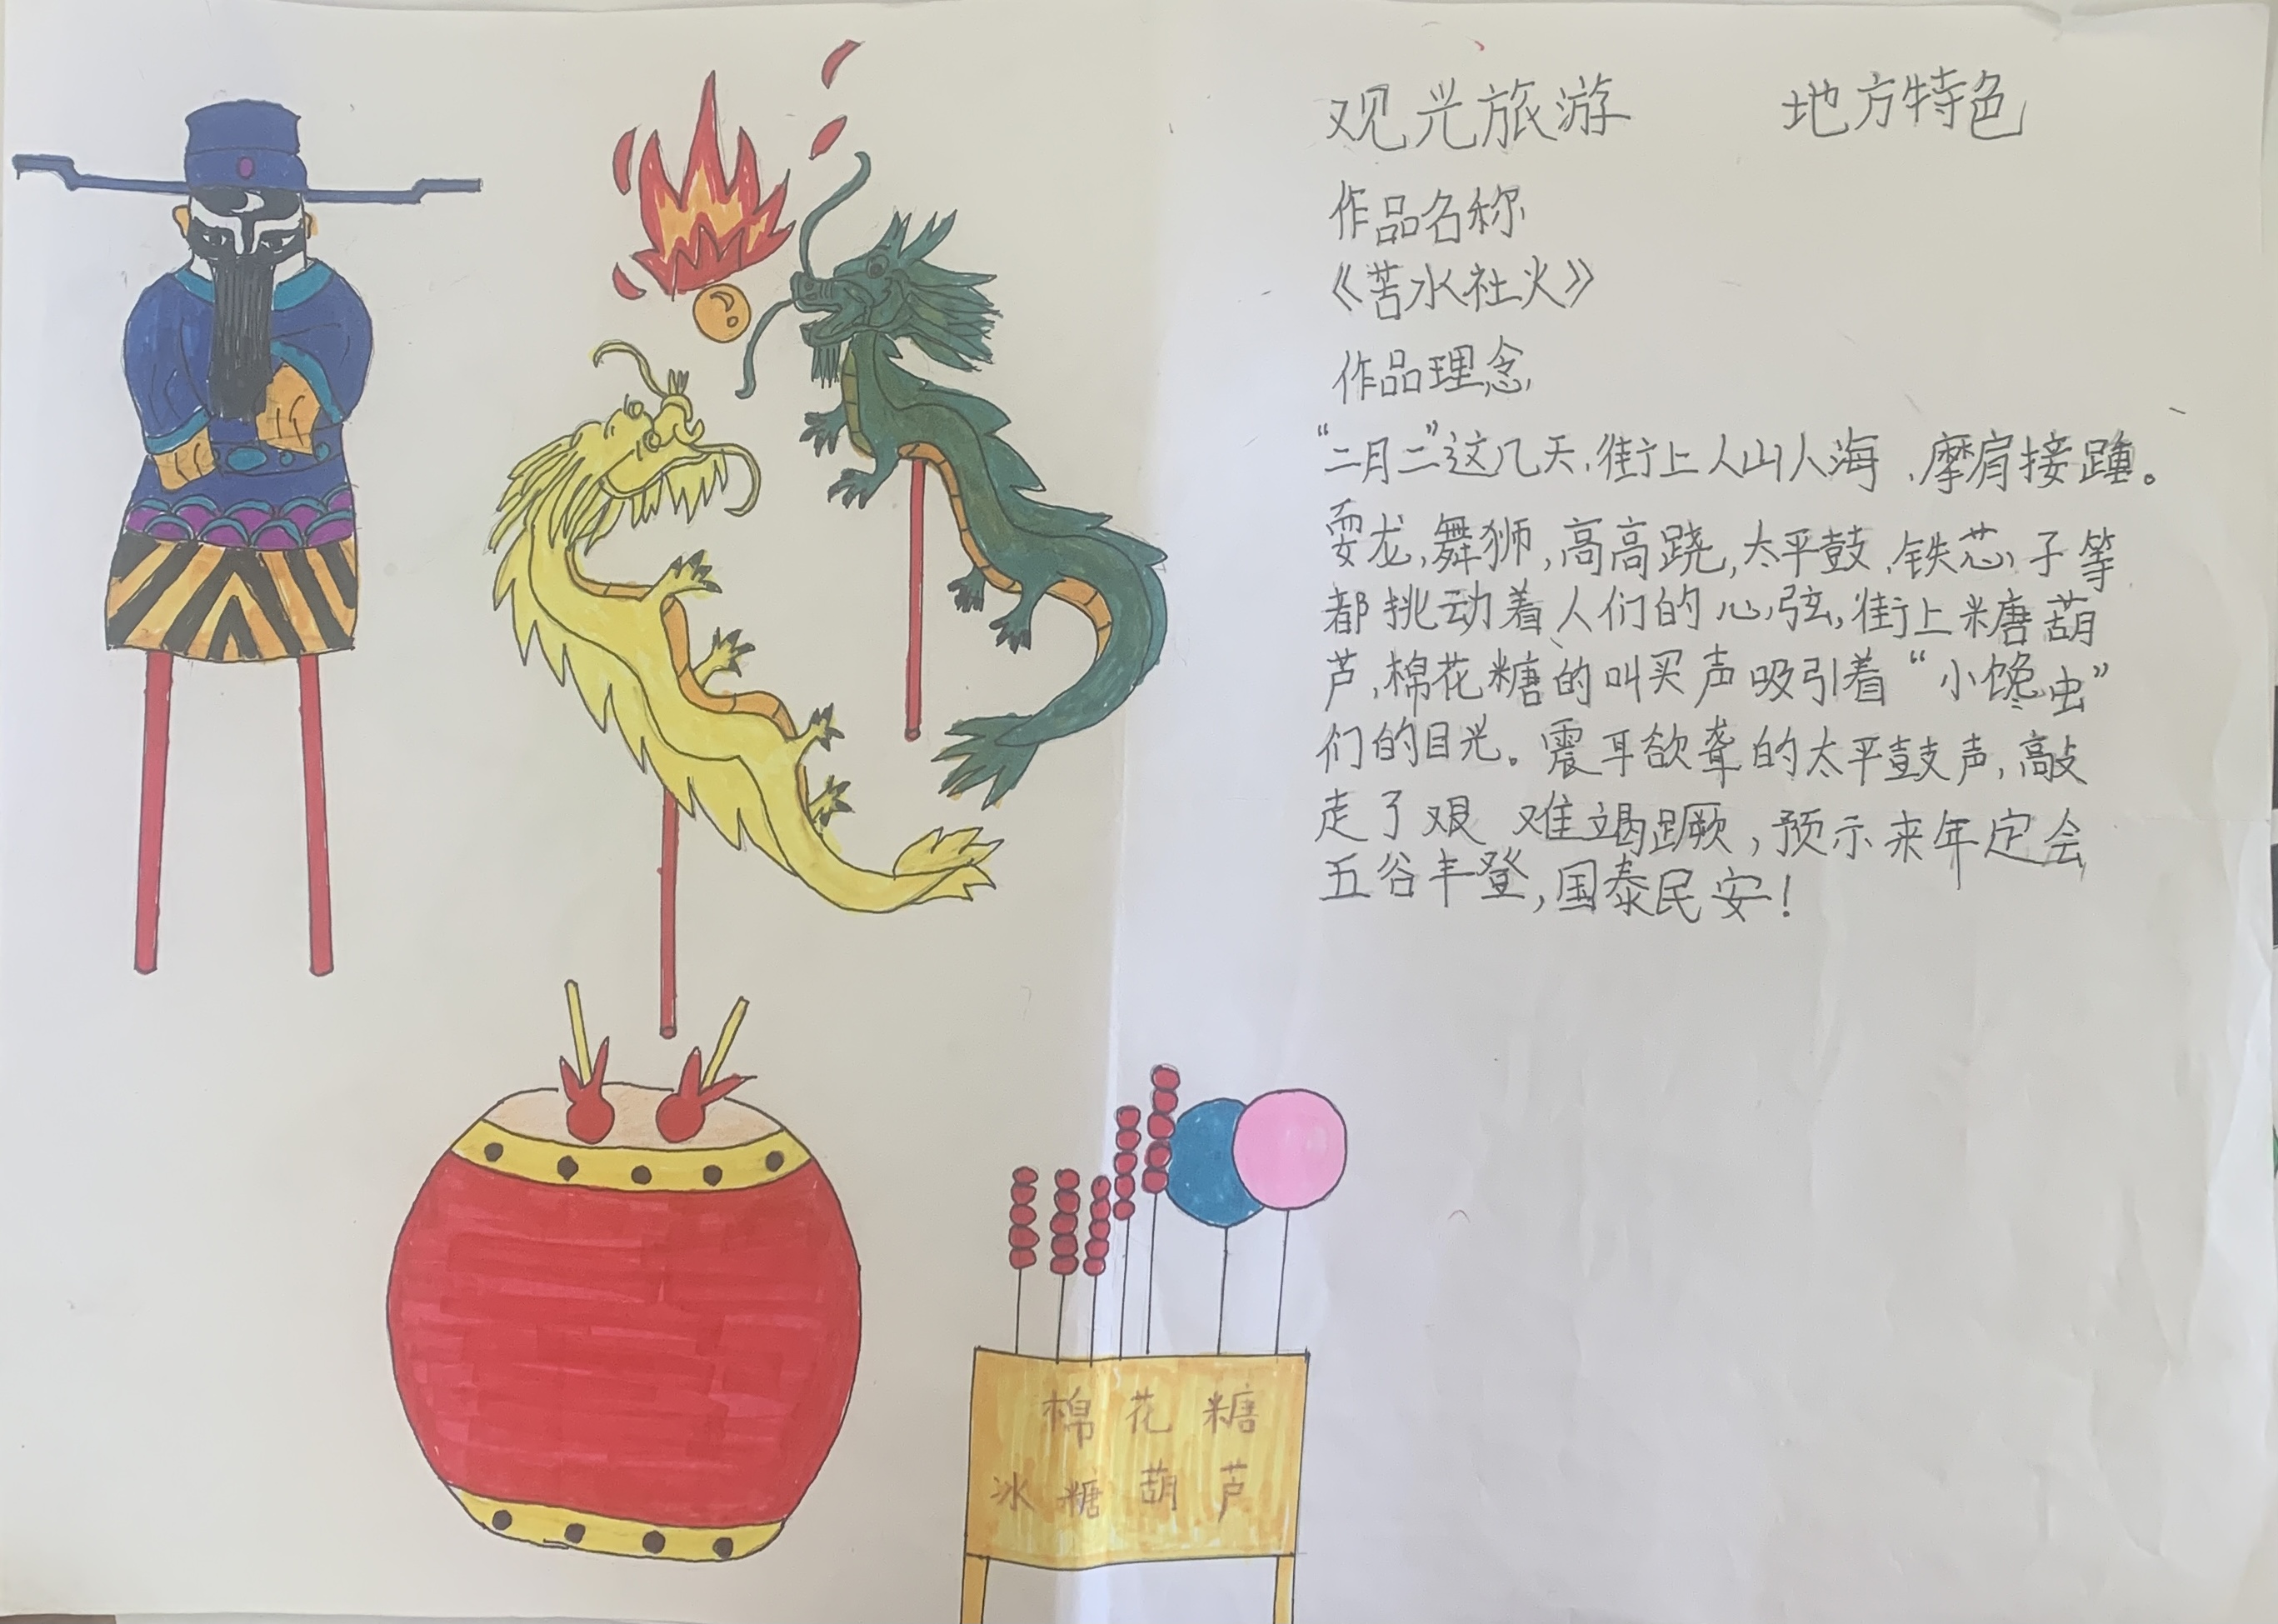 观光旅游 地方特色
作品名称
《苦水社火》
作品理念
“二月二”这几天,街上人山人海,摩肩接踵。
耍龙,舞狮,高高跷,太平鼓,铁芯子等
都挑动着人们的心弦,街上糖葫
芦,棉花糖的叫买声吸引着“小馋虫”
们的目光。震耳欲聋的太平鼓声,敲
走了艰难竭蹶,预示来年定会
五谷丰登,国泰民安!
棉花糖
冰糖葫芦